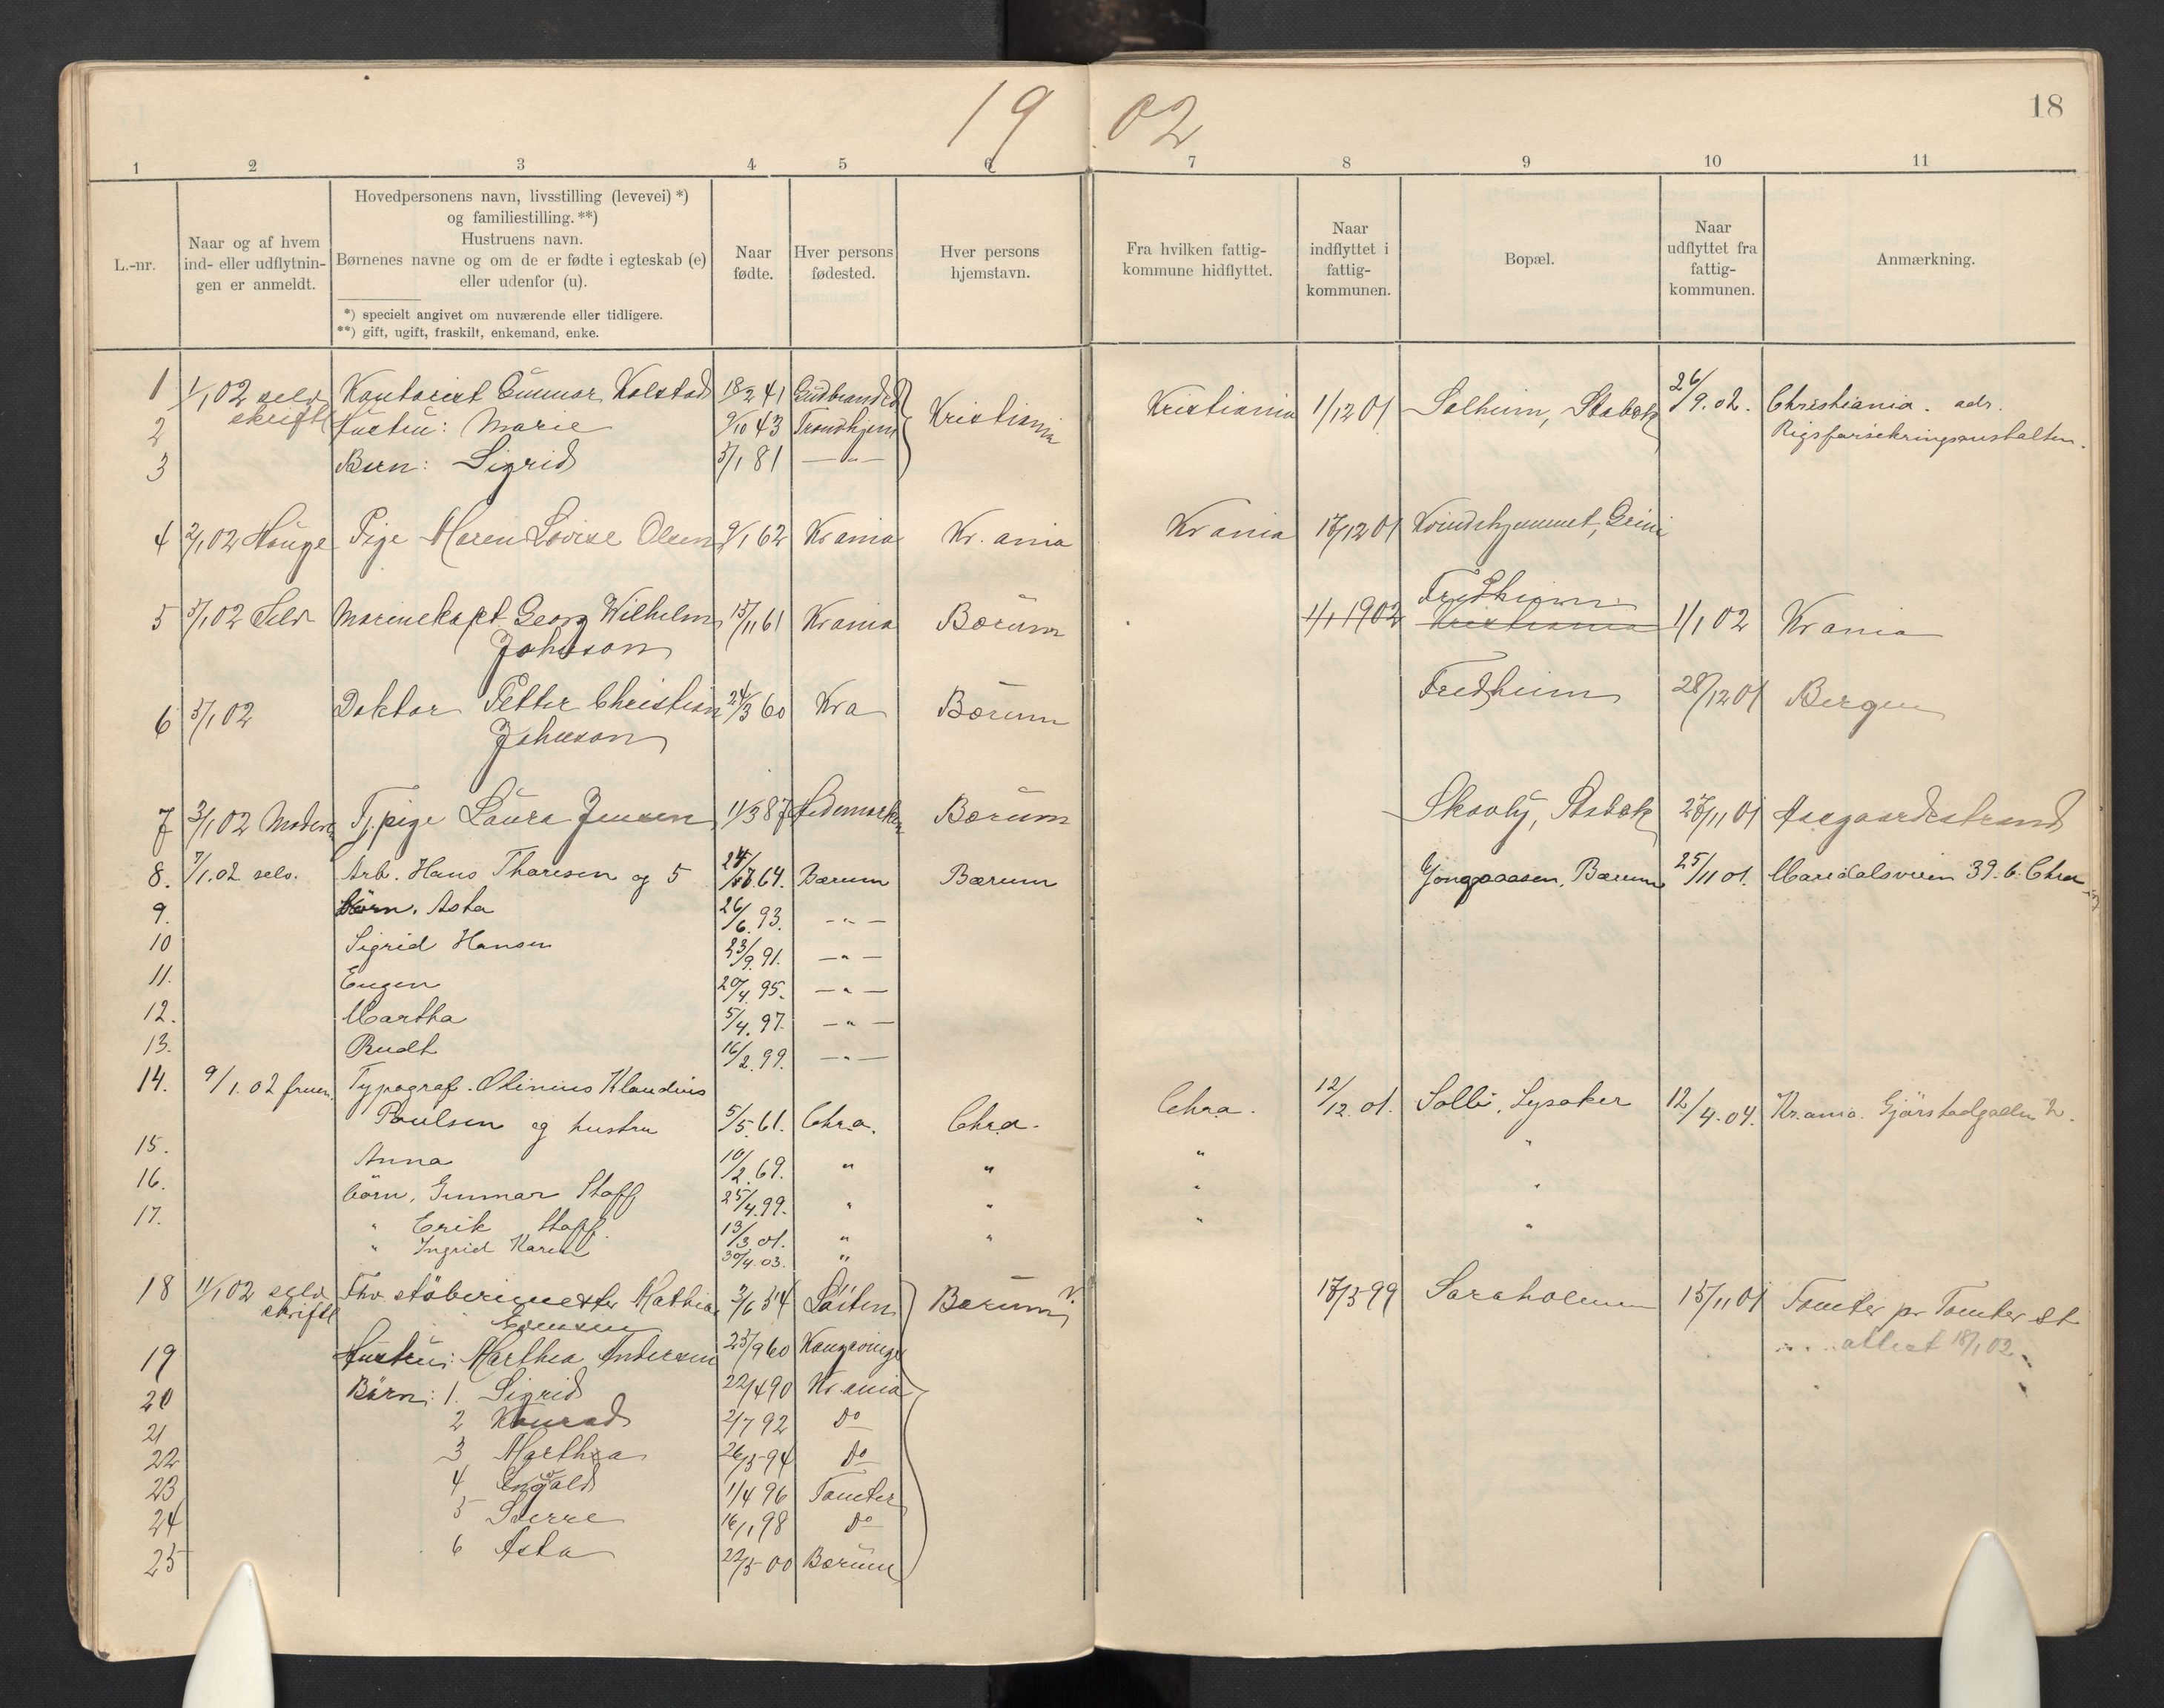 19 02
18
1 2 3 4 5 6 7 8 9 10 11
L.-nr.
Naar og af hvem
ind- eller udflytnin-
gen er anmeldt.
Hovedpersonens navn, livsstilling (levevei) *)
og familiestilling. **)
Hustruens navn.
Børnenes navne og om de er fødte i egteskab (e)
eller udenfor (u).
*) specielt angivet om nuværende eller tidligere.
**) gift, ugift, fraskilt, enkemand, enke.
Naar
fødte.
Hver persons
fødested.
Hver persons
hjemstavn.
Fra hvilken fattig-
kommune hidflyttet.
Naar
indflyttet i
fattig-
kommunen.
Bopæl.
Naar
udflyttet fra
fattig-
kommunen.
Anmærkning.
1 1/1 02 selv Kontorist Gunnar Kolstad 18/2 41 Gudbrandsd Kristiania Kristiania 1/12 01 Solheim, Stabæk 26/9.02. Christiania. adr.
skriftl Rigsforsikringsanstalten.
2 Hustru: Marie 9/10 43 Trondhjem
3 Barn: Sigrid 5/1 81 — " —
4 2/1 02 Hauge Pige Maren Lovise Olsen 9/1 62 Krania Kr.ania Krania 17/12 01 Kvindehjemmet, Grini
5 3/1 02 Selv Marinekapt Georg Wilhelm 15/11 61 Krania Bærum 1/1 1902 Fredheim Kristiania 1/1 02 Krania
Johnson
6 3/1 02 Doktor Petter Christian 24/3 60 Kra Bærum Fredheim 28/12 01 Bergen
Johnson
7 3/1 02 Moderen Tj.pige Laura Jensen 11/3 87 Hedemarken Bærum Skovly, Stabæk 27/11 01 Aasgaardsstrand
8. 7/1.02 selv. Arb. Hans Thoresen og 5 64. Bærum Bærum Bærum 25/11 01. Maridalsveien 39. b. Chra
9. børn. Asta 26/6.93. — " —
10 Sigrid Hansen 23/9.91. — " —
11. Eugen 20/4.95. — " —
12. Martha 5/4.97. — " —
13. Rudt 16/2.99. — " —
14. 9/1.02 fruen. Typograf. Olinius Klaudius
Poulsen og hustru 5/5.61. Chra. Chra. Chra. 12/12.01. Solli, Lysaker 12/4.04. Kr.ania. Gjörstadgaden 2.
15. Anna 10/2.69. " " " "
16. börn, Gunnar Staff 25/4.99. " " " "
17. " Erik Staff. 13/3.01. " " " "
" Ingrid Karen 30/4.03. "
18 11/1 02 selv Fhv. støberimester Mathias 2/6 54 Løiten Bærum? 17/3-99 Saraholmen 15/11 01 Tomter pr Tomter st
skriftl Evensen
attest 18/1 02
19 Hustru: Marthea Andersen 25/9 60 Kongsvinger
20 Børn: 1. Sigrid 22/4 90 Kr.ania
21 2 Konrad 2/7 92 Do
22 3 Marthea 26/3-94 Do
23 4 Ingvald 1/4 96 Tomter
24 5 Sverre 16/1 98 Do
25 6 Asta 22/5-00 Bærum